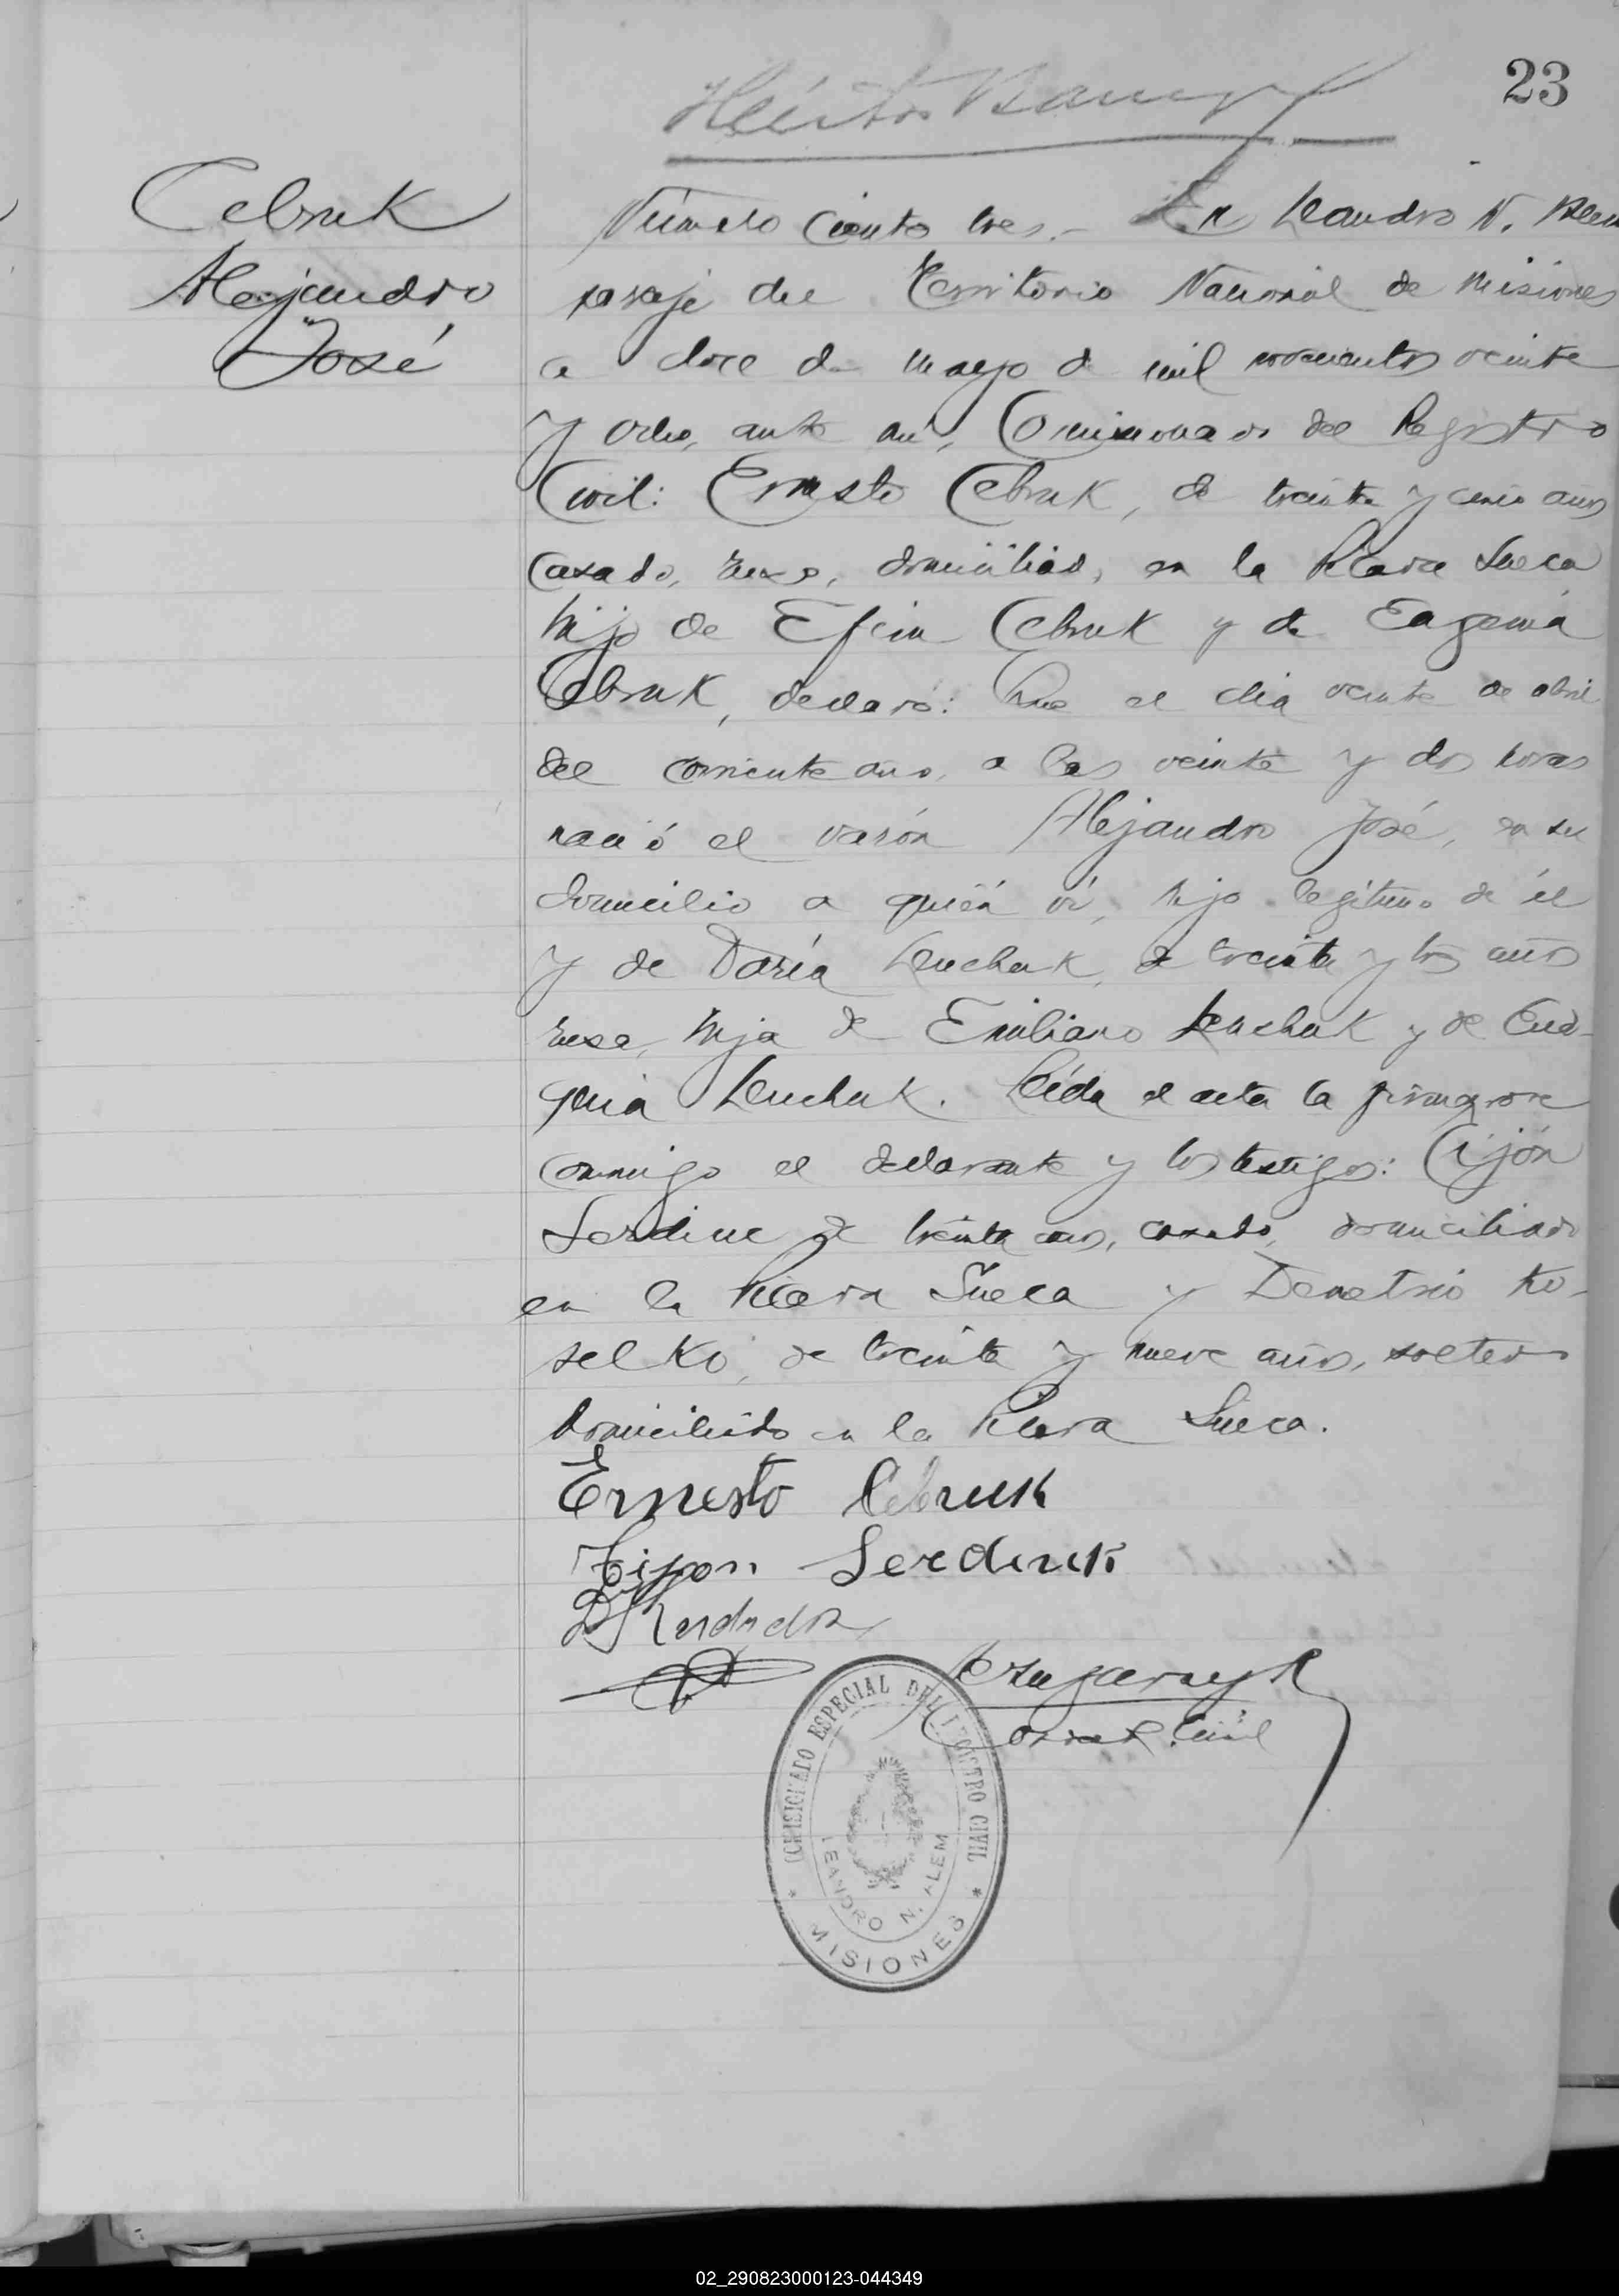 23
Cebruk
Alejandro
José
Número Ciento tres.- En Leandro N. Alem
paraje del Territorio Nacional de Misiones
a doce de mayo de mil novecientos veinte
y ocho, ante mí, Comisionado del Registro
Civil: Ernesto Cebruk, de treinta y cinco años
casado, ruso, domiciliado, en la Picada Sueca
hijo de Efim Cebruk y de Eugenia
Cebruk, declaró: Que el día veinte de abril
del corriente año, a las veinte y dos horas
nació el varón Alejandro José, en su
domicilio a quién ví, hijo legítimo de él
y de Daría Leuchuk, de treinta y tres años
rusa, hija de Emiliano Leuchuk y de
Leuchuk. Leída el acta la firmaron
conmigo el declarante y los testigos:
de treinta años, casado, domiciliado
en la Picada Sueca y Demetrio Ko-
selko, de treinta y nueve años, soltero
domiciliado en la Picada Sueca.
Ernesto Cebruk
Serdiuk
Com. R. Civil
COMISIONADO ESPECIAL DEL REGISTRO CIVIL
LEANDRO N. ALEM
* MISIONES *
02_290823000123-044349